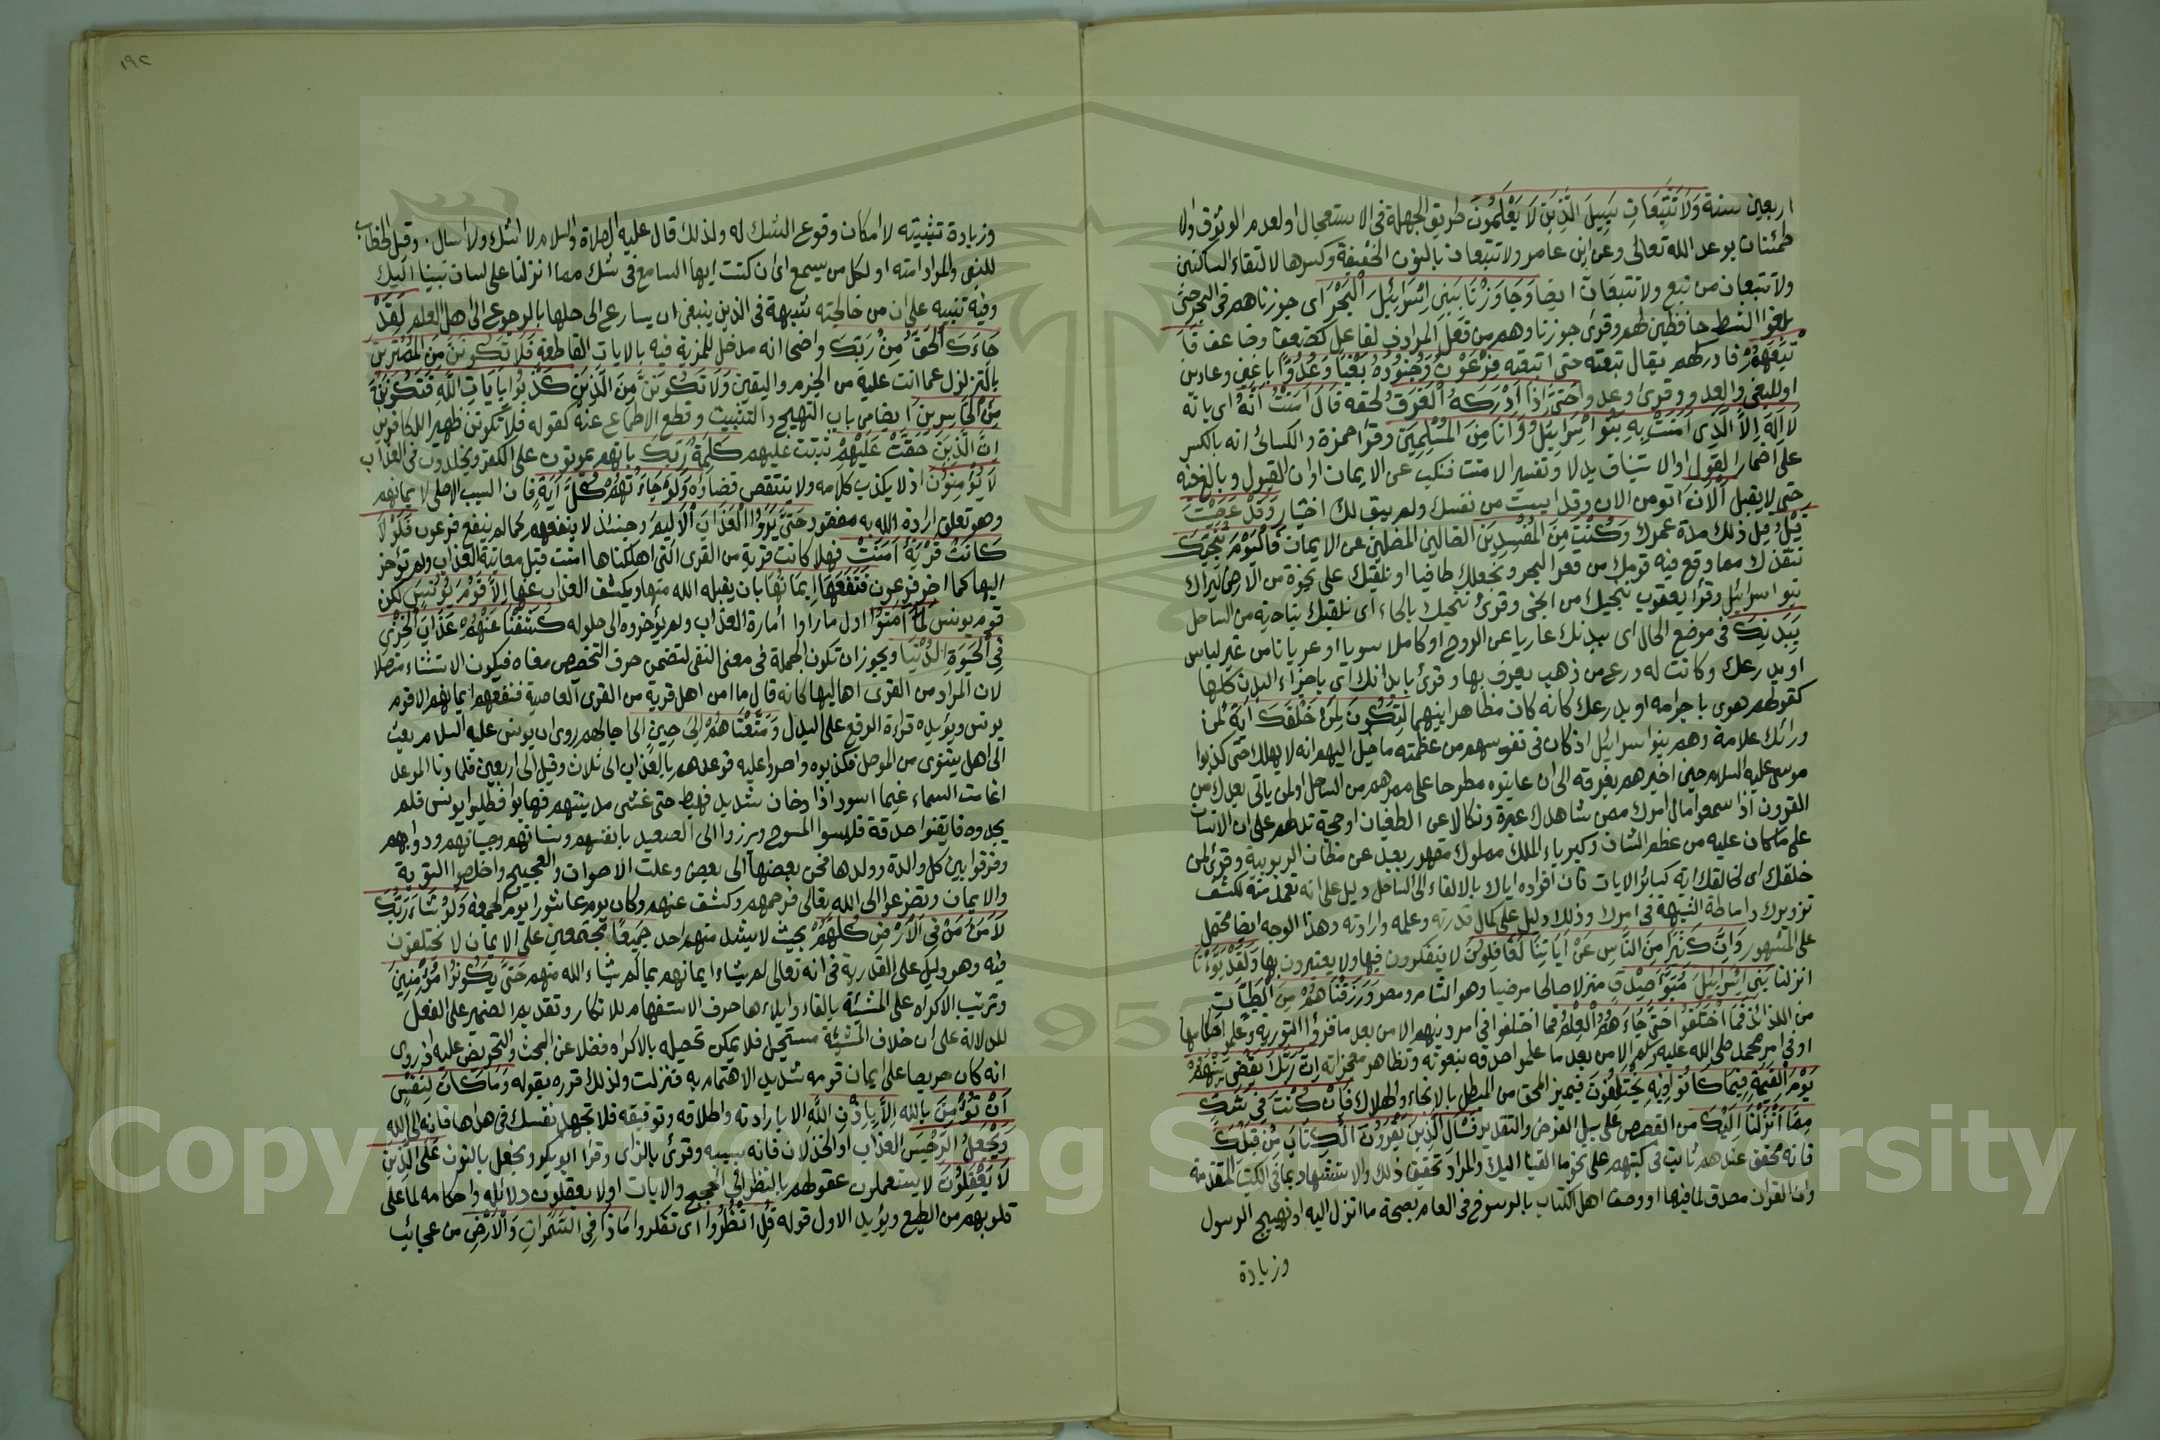 اربعين سنة وَلَا تَتَّبِعَانِّ سَبِيلَ الَّذِينَ لَا يَعْلَمُونَ طريق الجهلة في الاستعجال او لعدم الوثوق والا
طمئنان بوعد الله تعالى وعن ابن عامر ولا تتبعان بالنون الخفيفة وكسرها لالتقاء الساكنين
ولا تتبعان من تبع ولا تتبعان ايضا وَجَاوَزْنَا بِبَنِي اِسْرَائِيلَ الْبَحْرَ اى جوزناهم في البحر حتى
بلغوا الشط حافظين لهم وقرئ جوزنا وهو من فعل المرادف لفاعل كضعف وضاعف فَا
تْبَعَهُمْ فادركهم يقال تبعته حتى اتبعته فِرْعَوْنُ وَجُنُودُهُ بَغْيًا وَعُدُوًّا باغين وعادين
او للبغى والعدو وقرئ وعدوا حَتَّى إِذَا أَدْرَكَهُ الْغَرَقُ لحقه قَالَ آمَنْتُ أَنَّهُ اى بانه
لَا إِلَهَ إِلَّا الَّذِي آمَنَتْ بِهِ بَنُوا إِسْرَائِيلَ وَأَنَا مِنَ الْمُسْلِمِينَ وقرأ حمزة والكسائى انه بالكسر
على اضمار القول او الاستيناف بدلا وتفسيرا لامنت فنكب عن الايمان اوان القبول وبالغ فيه
حتى لا يقبل آلْآنَ اتومن الان وقد ايست من نفسك ولم يبق لك اختيار وَقَدْ عَصَيْتَ
قَبْلُ قبل ذلك مدة عمرك وَكُنْتَ مِنَ الْمُفْسِدِينَ الضالين المضلين عن الايمان فَالْيَوْمَ نُنَجِّيكَ
ننقذك مما وقع فيه قومك من قعر البحر ونجعلك طافيا او نلقيك على نجوة من الارض ليراك
بنو اسرائيل وقرأ يعقوب ننجيك من انجى وقرئ ننحيك بالحاء اى نلقيك بناحية من الساحل
بِبَدَنِكَ في موضع الحال اى ببدنك عاريا عن الروح او كاملا سويا او عريانا من غير لباس
او بدرعك وكانت له درع من ذهب يعرف بها وقرئ بابدانك اى باجزاء البدن كلها
كقولهم هوى باجرامه او بدرعك كانه كان مظاهرا بينهما لِتَكُونَ لِمَنْ خَلْفَكَ آيَةً لمن
ورائك علامة وهم بنوا اسرائيل اذ كان في نفوسهم من عظمته ما خيل اليهم انه لا يهلك حتى كذبوا
موسى عليه السلام حين اخبرهم بغرقه الى ان عاينوه مطرحا على ممرهم من الساحل او لمن ياتى بعدك من
القرون اذا سمعوا مال امرك ممن شاهدك عبرة ونكالا عن الطغيان او حجة تدلهم على ان الانسان
على ما كان عليه من عظم الشان وكبرياء الملك مملوك مقهور بعيد عن مظان الربوبية وقرئ لمن
خلقك اى لخالقك اية كسائر الايات فان افراده اياك بالالقاء الى الساحل دليل على انه تعمد منه لكشف
تزويرك واماطة الشبهة في امرك وذلك دليل على كمال قدرته وعلمه وارادته وهذا الوجه ايضا محتمل
على المشهور وَإِنَّ كَثِيرًا مِنَ النَّاسِ عَنْ آيَاتِنَا لَغَافِلُونَ لا يتفكرون فيها ولا يعتبرون بها وَلَقَدْ بَوَّأْنَا
انزلنا بَنِي إِسْرَائِيلَ مُبَوَّأَ صِدْقٍ منزلا صالحا مرضيا وهو الشام ومصر وَرَزَقْنَاهُمْ مِنَ الطَّيِّبَاتِ
من اللذائذ فَمَا اخْتَلَفُوا حَتَّى جَاءَهُمُ الْعِلْمُ فما اختلفوا في امر دينهم الا من بعد ما قرؤا التورية وعلموا احكامها
او في امر محمد صلى الله عليه وسلم الا من بعد ما علموا صدقه بنعوته وتظاهر معجزاته إِنَّ رَبَّكَ يَقْضِي بَيْنَهُمْ
يَوْمَ الْقِيَمَةِ فِيمَا كَانُوا فِيهِ يَخْتَلِفُونَ فيميز المحق من المبطل بالانجاء والهلاك فَإِنْ كُنْتَ فِي شَكٍّ
مِمَّا أَنْزَلْنَا إِلَيْكَ من القصص على سبيل الفرض والتقدير فَسْأَلِ الَّذِينَ يَقْرَؤُنَ الْكِتَابَ مِنْ قَبْلِكَ
فانه محقق عندهم ثابت في كتبهم على نحو ما القينا اليك والمراد تحقيق ذلك والاستشهاد بما في الكتب المتقدمة
وان القران مصدق لما فيها او وصف اهل الكتاب بالرسوخ في العلم بصحة ما انزل اليه او تهييج الرسول
وزيادة
١٩٢
وزيادة تثبيته لا امكان وقوع الشك له ولذلك قال عليه الصلاة والسلام لا اشك ولا اسال. وقيل الخطاب
للنبى والمراد امته او لكل من يسمع اى ان كنت ايها السامع في شك مما انزلنا على لسان نبينا اليك
وفيه تنبيه على ان من خالجته شبهة في الدين ينبغى ان يسارع الى حلها بالرجوع الى اهل العلم لَقَدْ
جَاءَكَ الْحَقُّ مِنْ رَبِّكَ واضحا انه مدخل للمرية فيه بالايات القاطعة فَلَا تَكُونَنَّ مِنَ الْمُمْتَرِينَ
بالتزلزل عما انت عليه من الجزم واليقين وَلَا تَكُونَنَّ مِنَ الَّذِينَ كَذَّبُوا بِآيَاتِ اللَّهِ فَتَكُونَ
مِنَ الْخَاسِرِينَ ايضا من باب التهييج والتثبيت وقطع الاطماع عنه كقوله فلا تكونن ظهيرا للكافرين
إِنَّ الَّذِينَ حَقَّتْ عَلَيْهِمْ ثبتت عليهم كَلِمَةُ رَبِّكَ بانهم يموتون على الكفر ويخلدون في العذاب
لَا يُؤْمِنُونَ اذ لا يكذب كلامه ولا ينتقض قضاؤه وَلَوْ جَاءَتْهُمْ كُلُّ آيَةٍ فان السبب الاصلى لايمانهم
وهو تعلق ارادة الله به مفقود حَتَّى يَرَوُا الْعَذَابَ الْأَلِيمَ وحينئذ لا ينفعهم كما لم ينفع فرعون فَلَوْلَا
كَانَتْ قَرْيَةٌ آمَنَتْ فهلا كانت قرية من القرى التى اهلكناها امنت قبل معاينة العذاب ولم تؤخر
اليها كما اخر فرعون فَنَفَعَهَا إِيمَانُهَا بان يقبله الله منها ويكشف العذاب عنها إِلَّا قَوْمَ يُونُسَ لكن
قوم يونس لَمَّا آمَنُوا اول ما راوا امارة العذاب ولم يؤخروه الى حلوله كَشَفْنَا عَنْهُمْ عَذَابَ الْخِزْيِ
فِي الْحَيَوةِ الدُّنْيَا ويجوز ان تكون الجملة في معنى النفى لتضمن حرف التخصيص معناه فيكون الاستثناء متصلا
لان المراد من القرى اهاليها كانه قال ما امن اهل قرية من القرى العاصية فنفعهم ايمانهم الا قوم
يونس ويؤيده قراءة الرفع على البدل وَمَتَّعْنَاهُمْ إِلَى حِينٍ الى اجالهم روى ان يونس عليه السلام بعث
الى اهل نينوى من الموصل فكذبوه واصروا عليه فوعدهم بالعذاب الى ثلاث وقيل الى اربعين فلما دنا الموعد
اغامت السماء غيما اسود اذا دخان شديد فهبط حتى غشى مدينتهم فهابوا فطلبوا يونس فلم
يجدوه فايقنوا صدقه فلبسوا المسوح وبرزوا الى الصعيد بانفسهم ونسائهم وصبيانهم ودوابهم
وفرقوا بين كل والدة وولدها فحن بعضها الى بعض وعلت الاصوات والعجيج واخلصوا التوبة
والايمان وتضرعوا الى الله تعالى فرحمهم وكشف عنهم وكان يوم عاشورا يوم الجمعة وَلَوْ شَاءَ رَبُّكَ
لَآمَنَ مَنْ فِي الْأَرْضِ كُلُّهُمْ بحيث لا يشذ منهم احد جَمِيعًا مجتمعين على الايمان لا يختلفون
فيه وهو دليل على القدرية في انه تعالى لم يشاء ايمانهم بما لم يشاء الله منهم حَتَّى يَكُونُوا مُؤْمِنِينَ
وترتيب الاكراه على المشيئة بالفاء وايلاءها حرف الاستفهام للانكار وتقديم الضمير على الفعل
للدلالة على ان خلاف المشيئة مستحيل فلا يمكن تحصيله بالاكراه فضلا عن الحث والتحريض عليه اذ روى
انه كان حريصا على ايمان قومه شديد الاهتمام به فنزلت ولذلك قرره بقوله وَمَا كَانَ لِنَفْسٍ
أَنْ تُؤْمِنَ بالله إِلَّا بِإِذْنِ اللَّهِ الا بارادته واطلاقه وتوفيقه فلا تجهد نفسك في هداها فانه الى الله
وَيَجْعَلُ الرِّجْسَ العذاب او الخذلان فانه بسببه وقرئ بالزاى وقرا ابو بكر ونجعل بالنون عَلَى الَّذِينَ
لَا يَعْقِلُونَ لا يستعملون عقولهم بالنظر الى الحجج والايات اولا يعقلون دلائله واحكامه لما على
قلوبهم من الطبع ويؤيد الاول قوله قُلِ انْظُرُوا اى تفكروا مَاذَا فِي السَّمَوَاتِ وَالْأَرْضِ من عجائب